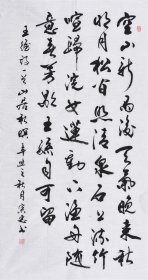 空山新雨後天氣晚来秋
明月松间照清泉石上流竹
喧歸浣女蓮動下漁舟随
意春芳歇王孫自可留
王维诗一首山居秋暝辛丑之秋月書